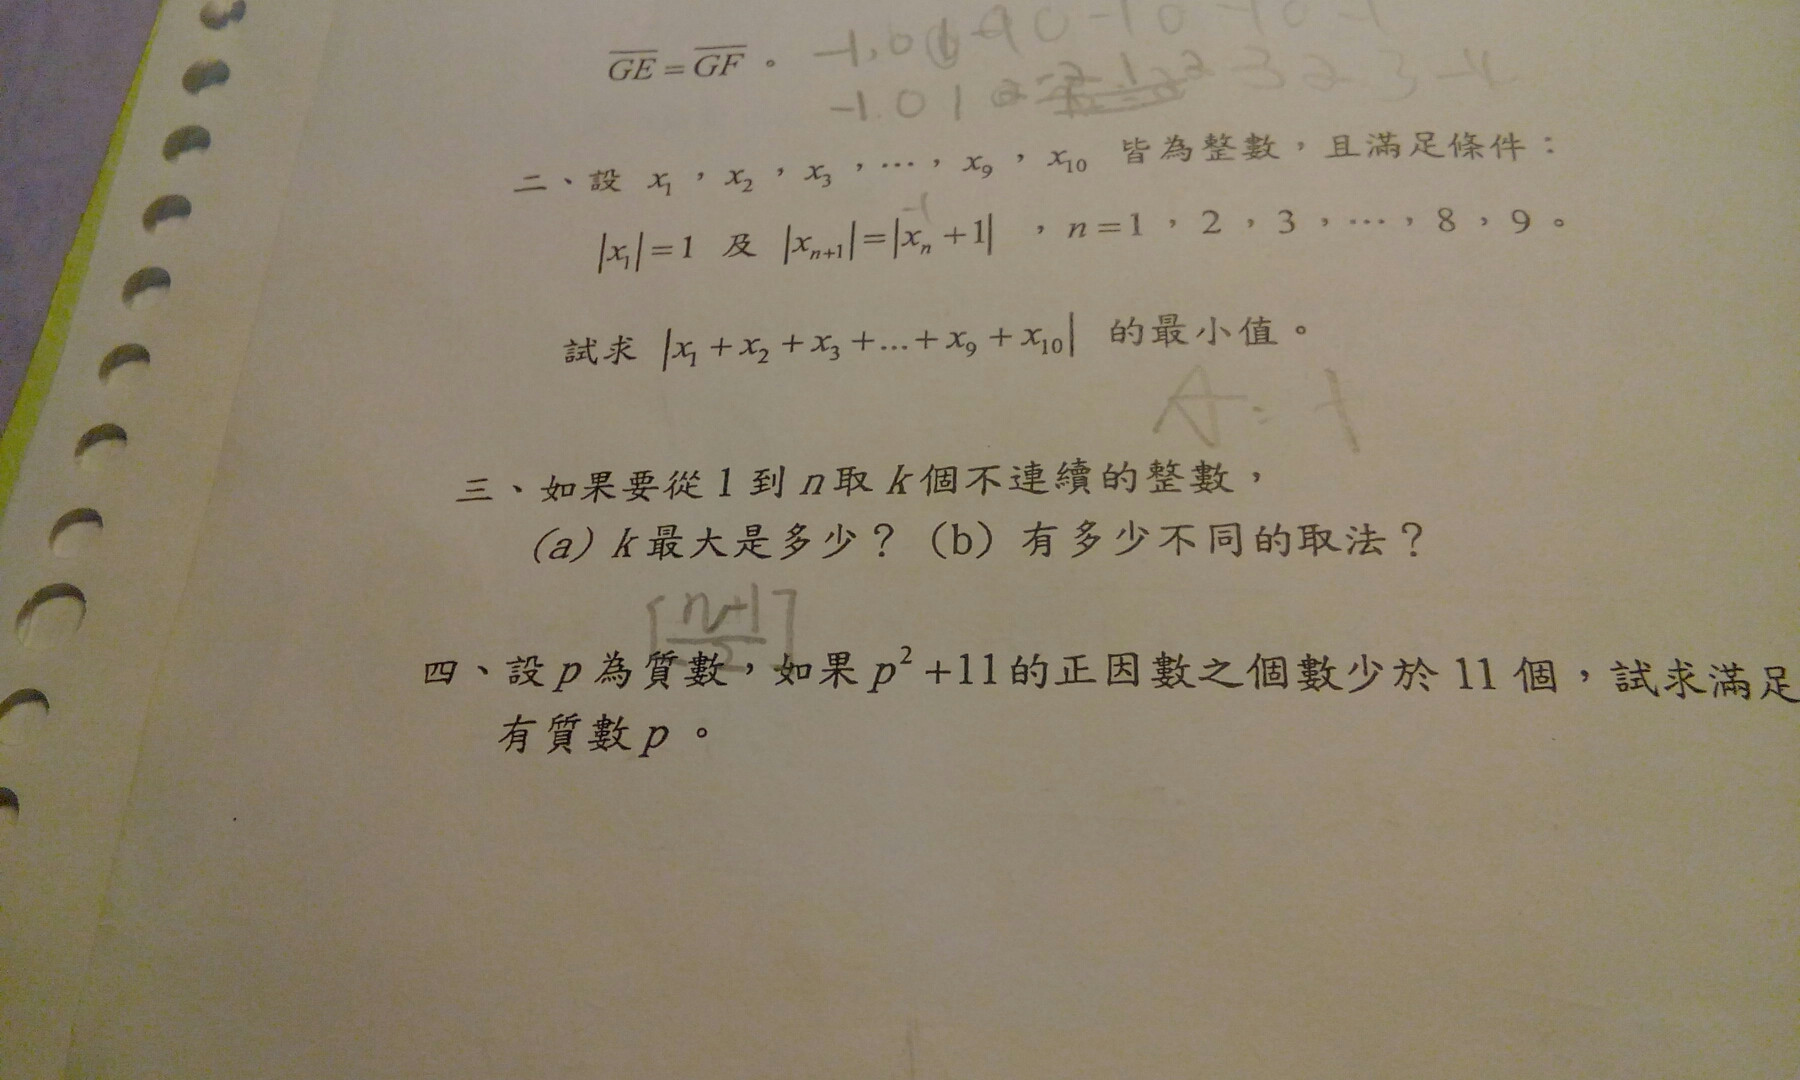 GE = GF 。
-1.01
二、設 x₁，x₂，x₃，…，x₉，x₁₀ 皆為整數，且滿足條件：
-1
|x₁|=1 及 |xₙ₊₁|=|xₙ+1| ，n=1，2，3，…，8，9。
試求 |x₁+x₂+x₃+...+x₉+x₁₀| 的最小值。
A:1
三、如果要從1到n取k個不連續的整數，
(a) k最大是多少？(b) 有多少不同的取法？
[n+1/2]
四、設p為質數，如果p²+11的正因數之個數少於11個，試求滿足
有質數p。